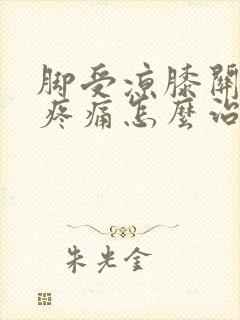 脚受凉膝關
疼痛怎麼治
朱光金